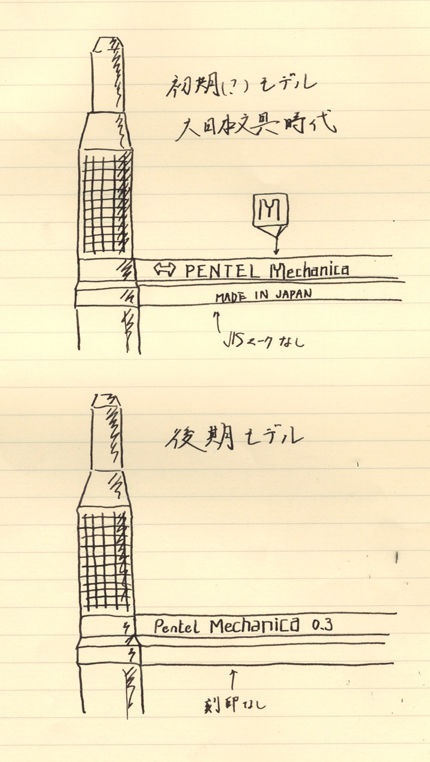 初期(?)モデル
大日本文具時代
M
⇔ PENTEL Mechanica
MADE IN JAPAN
JISマークなし
後期モデル
Pentel Mechanica 0.3
刻印なし